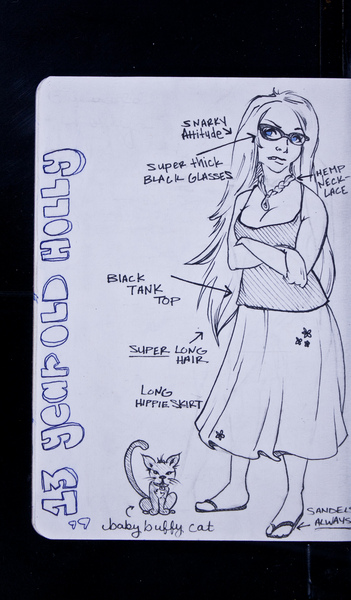 13 year OLD HOLLY
SNARKY
Attitude
SUPER thick
BLACK GLASSES
HEMP
NECK-
LACE
BLACK
TANK
TOP
SUPER LONG
HAIR
LONG
HIPPIE SKIRT
baby buffy cat
SANDELS
ALWAYS